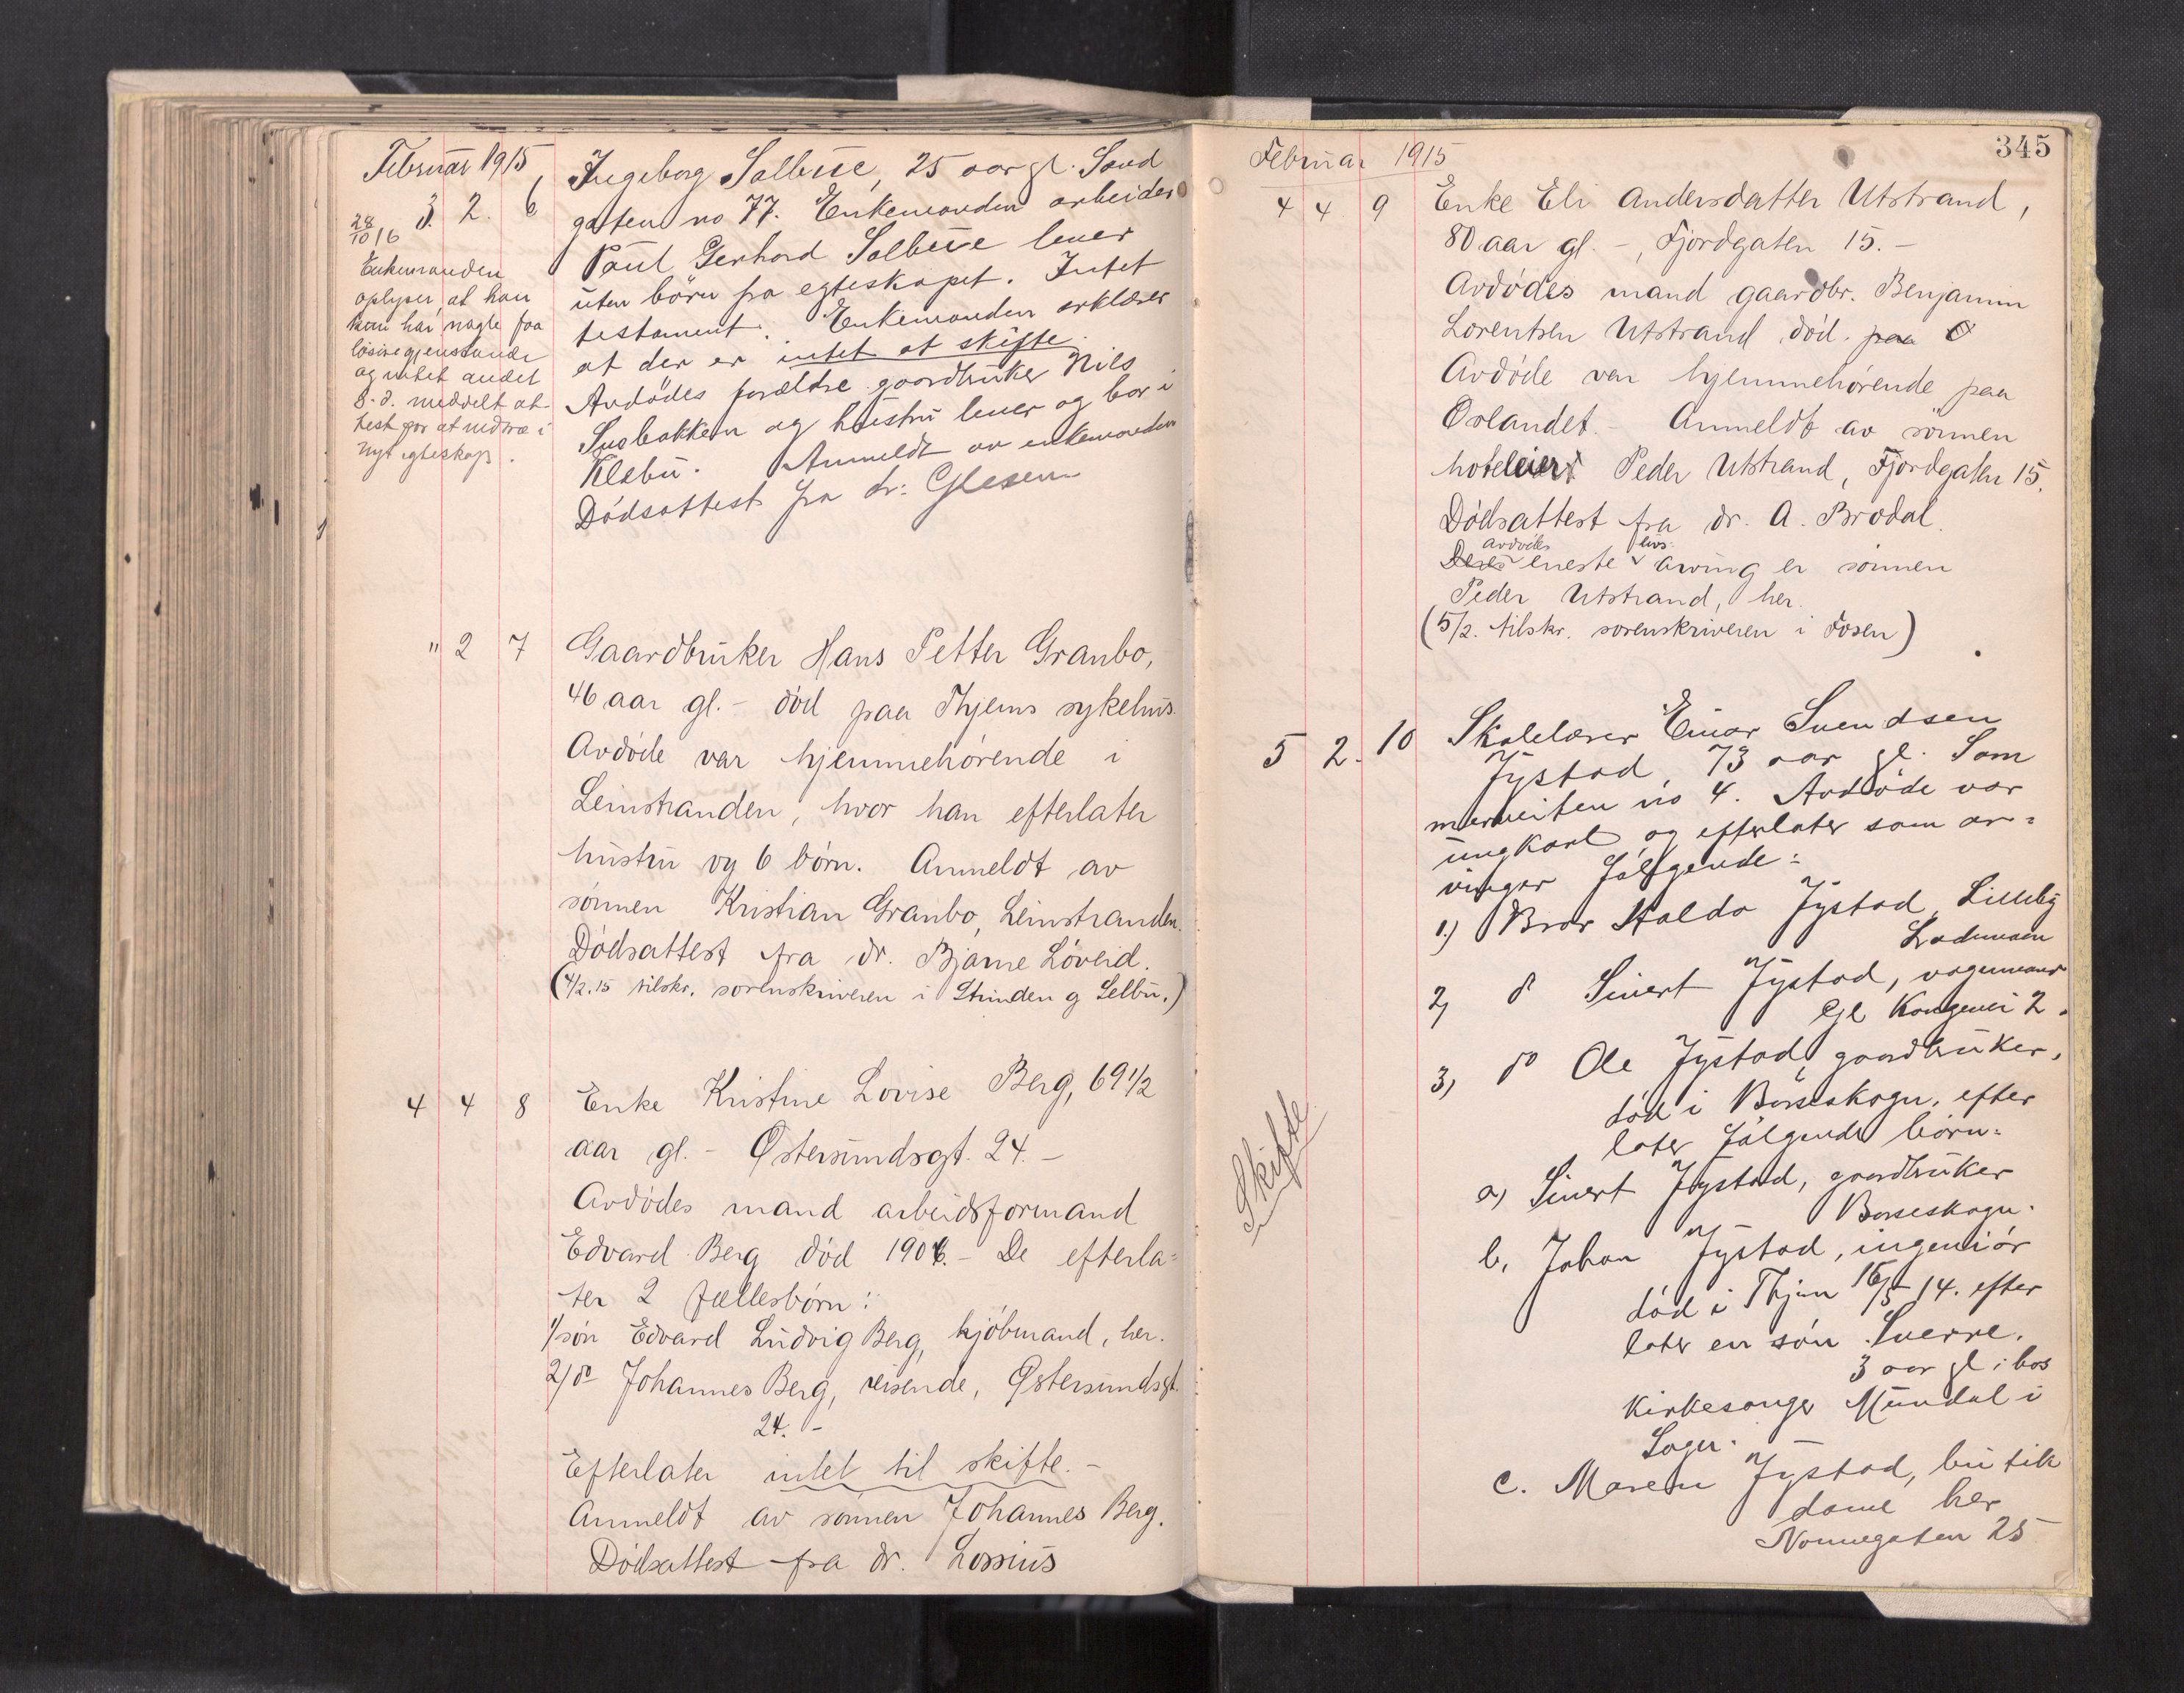 Februar 1915
3. 2. 6
Ingeborg Solbue, 25 aar gl. Sand
gaten no 77. Enkemanden arbeider
Paul Gerhard Solbue lever
uten börn fra egteskapet. Intet
testament. Enkemanden erklærer
at der er intet at skifte
Avdödes forældre gaardbruker Nils
og hustru lever og bor i
Klæbu. Anmeldt av enkemanden
Dödsattest fra dr:
28/10 16
Enkemanden
oplyser, at han
kun har nogle faa
løsøregjenstande
og intet andet
S. d. meddelt at-
test for at indtræ i
nyt egteskap.
" 2 7
Gaardbruker Hans Petter Granbo,
46 aar gl. - død paa Thjems sykehus.
Avdøde var hjemmehørende i
Leinstranden, hvor han efterlater
hustru og 6 børn. Anmeldt av
sønnen Kristian Granbo, Leinstranden.
Dødsattest fra dr. Bjarne Løveid.
(4/2.15 tilskr. sorenskriveren i Strinden og Selbu.)
4 4 8
Enke Kristine Lovise Berg, 69 1/2
aar gl. - Østersundsgt. 24. -
Avdødes mand arbeidsformand
Edvard Berg død 1906. - De efterla=
ter 2 fællesbørn:
1/ søn Edvard Ludvig Berg, kjøbmand, her.
2/ do Johannes Berg, reisende, Østersundsgt.
24. -
Efterlater intet til skifte. -
Anmeldt av sønnen Johannes Berg.
Dødsattest fra dr. Lossius
345
Februar 1915
4 4. 9
Enke Eli Andersdatter Utstrand,
80 aar gl. -, Fjordgaten 15. -
Avdødes mand gaardbr. Benjamin
Lorentsen Utstrand død. paa Ø
Avdøde var hjemmehørende paa
Ørlandet. - Anmeldt av sønnen
hoteleier Peder Utstrand, Fjordgaten 15.
Dødsattest fra dr. A. Brodal.
avdødes livs-
Deres eneste arving er sønnen
Peder Utstrand, her.
(5/2. tilskr. sorenskriveren i Fosen)
5 2. 10
Skolelærer Einar Svendsen
Jystad, 73 aar gl. Som
merveiten no 4. Avdöde var
ungkarl og efterlater som ar=
vinger fölgende:
1.) Bror Haldo Jystad, Lilleby
Lademoen
2) do Sivert Jystad, vognmand
Gl Kongevei 2.
3) do Ole Jystad, gaardbruker,
död i Börseskogn, efter
later fölgende börn:
a) Sivert Jystad, gaardbruker
Börseskogn.
b, Johan Jystad, ingeniör
död i Thjem 16/5 14. efter
later en sön Sverre.
3 aar gl: hos
Kirkesanger Mundal i
c. Maren Jystad, butik
dame her
Nonnegaten 25
Skifte